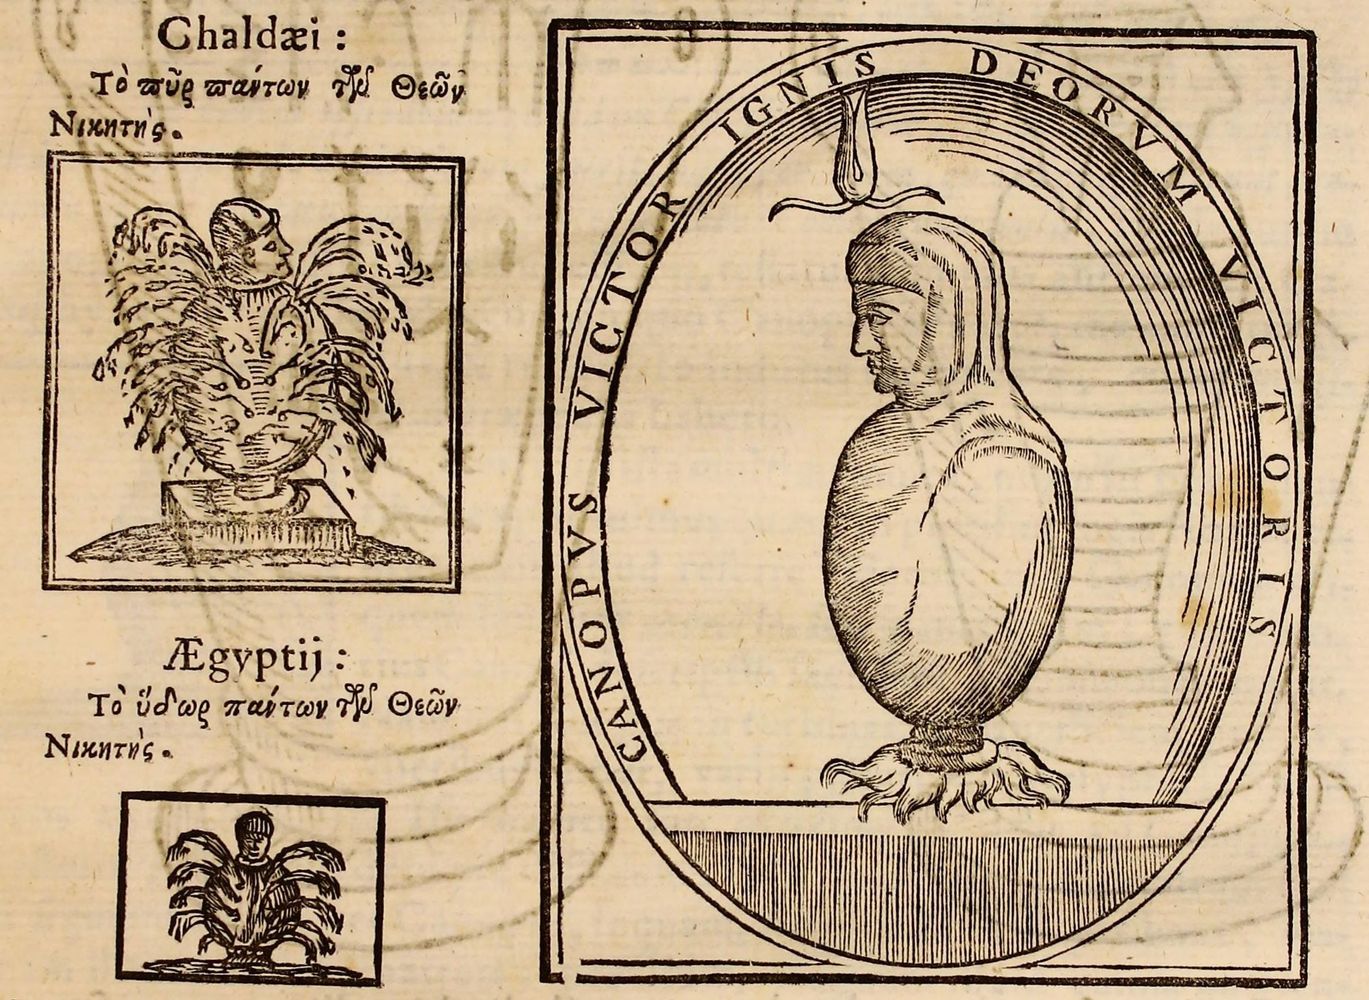 Chaldæi :
Τὸ πῦρ πάντων τῶν Θεῶν
Νικητής.
Ægyptij :
Τὸ ὕδωρ πάντων τῶν Θεῶν
Νικητής.
CANOPVS VICTOR IGNIS DEORVM VICTORIS